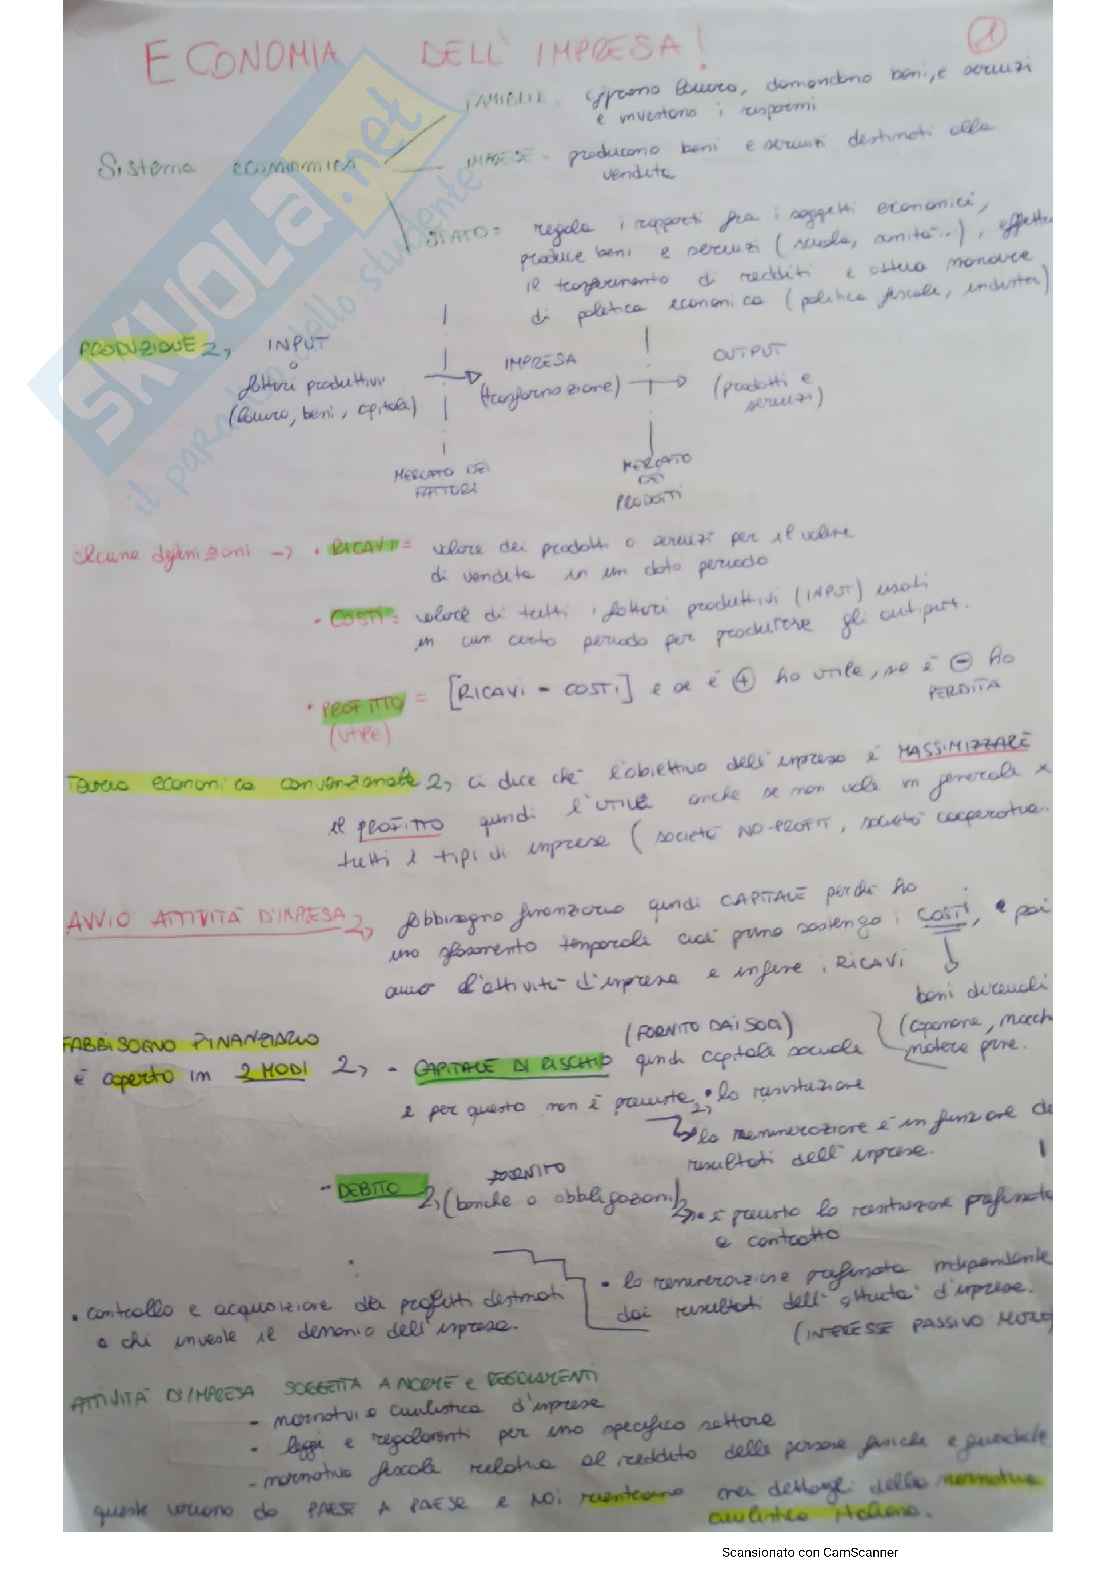 ECONOMIA DELL'IMPRESA! 1
FAMIGLIE - offrono lavoro, domandano beni, e servizi
e investono i risparmi
Sistema economico
IMPRESE - producono beni e servizi destinati alla
vendita
STATO = regola i rapporti fra i soggetti economici,
produce beni e servizi (scuola, sanità...), effettua
il trasferimento di redditi e attua manovre
di politica economica (politica fiscale, industr)
PRODUZIONE
INPUT
o
fattori produttivi
(lavoro, beni, capitale)
IMPRESA
(trasformazione)
OUTPUT
(prodotti e
servizi)
MERCATO DEI
FATTORI
MERCATO
DEI
PRODOTTI
Alcune definizioni → • RICAVI = valore dei prodotti o servizi per il valore
di vendita in un dato periodo
• COSTI = valore di tutti i fattori produttivi (INPUT) usati
in un certo periodo per produrre gli output.
• PROFITTO = [RICAVI - COSTI] e se è + ho UTILE, se è - ho
PERDITA
(UTILE)
Teoria economica convenzionale ci dice che l'obiettivo dell'impresa è MASSIMIZZARE
il PROFITTO quindi l'UTILE anche se non vale in generale x
tutti i tipi di imprese (società NO-PROFIT, società cooperativa.
AVVIO ATTIVITÀ D'IMPRESA fabbisogno finanziario quindi CAPITALE perché ho
uno sfasamento temporale cioè prima sostengo i COSTI, e poi
avvio l'attività d'impresa e infine i RICAVI
beni durevoli
(capannone, macch
materie prime.
FABBISOGNO FINANZIARIO
è coperto in 2 MODI
(FORNITO DAI SOCI)
- CAPITALE DI RISCHIO quindi capitale sociale
e per questo non è prevista • la restituzione
la remunerazione è in funzione de
risultati dell'impresa.
FORNITO
- DEBITO (banche o obbligazioni)
è prevista la restituzione prefissata
a contratto
• la remunerazione prefissata indipendente
dai risultati dell'attività d'impresa.
(INTERESSE PASSIVO
• controllo e acquisizione dei profitti destinati
a chi investe il denaro dell'impresa.
ATTIVITÀ DI IMPRESA SOGGETTA A NORME e REGOLAMENTI
- normativa civilistica d'impresa
- leggi e regolamenti per uno specifico settore
- normativa fiscale relativa al reddito delle persone fisiche e giuridiche
queste variano da PAESE A PAESE e NOI nei dettagli della normativa
civilistica italiana.
SKUOLA.net
il paradiso dello studente
Scansionato con CamScanner